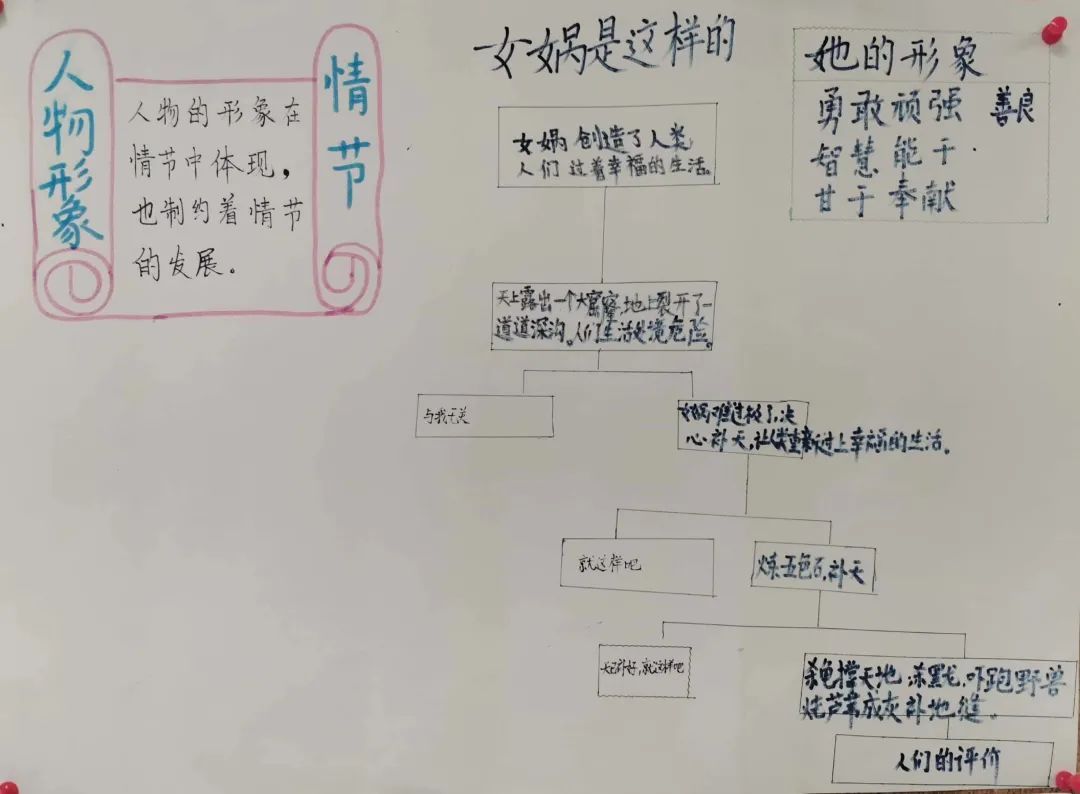 人物形象
人物的形象在
情节中体现，
也制约着情节
的发展。
情节
女娲是这样的
她的形象
勇敢顽强 善良
智慧能干
甘于奉献
女娲创造了人类，
人们过着幸福的生活。
天上露出一个大窟窿,地上裂开了一
道道深沟。人们生活处境危险。
与我无关
女娲难过极了,决
心补天,让人类重新过上幸福的生活。
就这样吧
炼五色石,补天
天已补好,就这样吧
杀龟撑天地,杀黑龙,吓跑野兽
烧芦苇成灰补地缝。
人们的评价